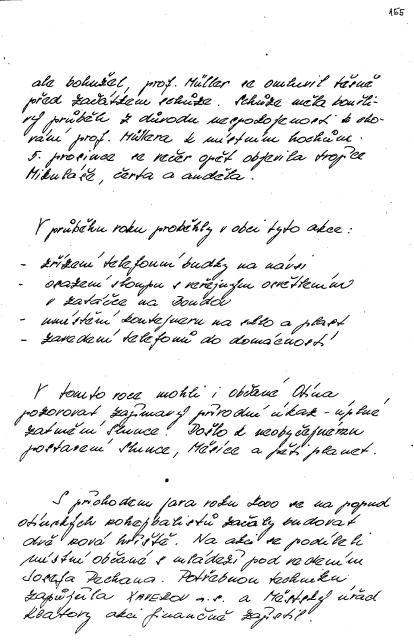 155
ale bohužel, prof. Müller se omluvil těsně
před začátkem schůze. Schůze měla bouřli-
vý průběh z důvodu nespokojenosti k cho-
vání prof. Müllera k místním hochům.
5. prosince se večer opět objevila trojice
Mikuláše, čerta a anděla.
V průběhu roku proběhly v obci tyto akce:
- zřízení telefonní budky na návsi
- osazení sloupu s veřejným osvětlením
v zatáčce na
- umístění kontejneru na sklo a plast
- zavedení telefonů do domácností
V tomto roce mohli i občané Otína
pozorovat zajímavý přírodní úkaz - úplné
zatmění Slunce! Došlo k neobyčejnému
postavení Slunce, Měsíce a pěti planet.
S příchodem jara roku 2000 se na popud
otínských nohejbalistů začaly budovat
dvě nová hřiště. Na akci se podíleli
místní občané s mládeží pod vedením
Josefa Pechana. Potřebnou techniku
zapůjčila a.s. a Městský úřad
Klatovy akci finančně zajistil.